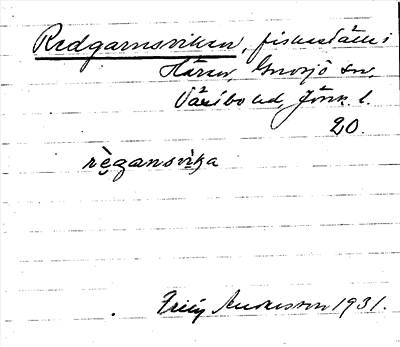 Redgarnsviken, fiskeställe i
Hären, Gnosjö sn,
Västbo hd, Jönk. l.
20.
rẹ̀gansvika
Andersson 1931.